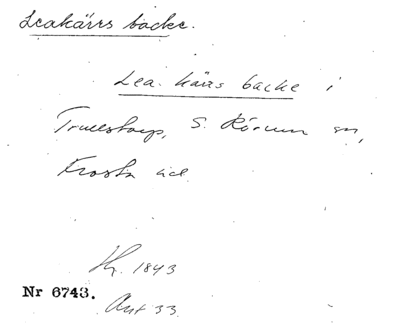 Leakärrs backe.
Lea kärrs backe i
Trulstorp, S. Rörum sn,
Frosta hd.
Hg. 1843
Nr 6743.
Ant 33.